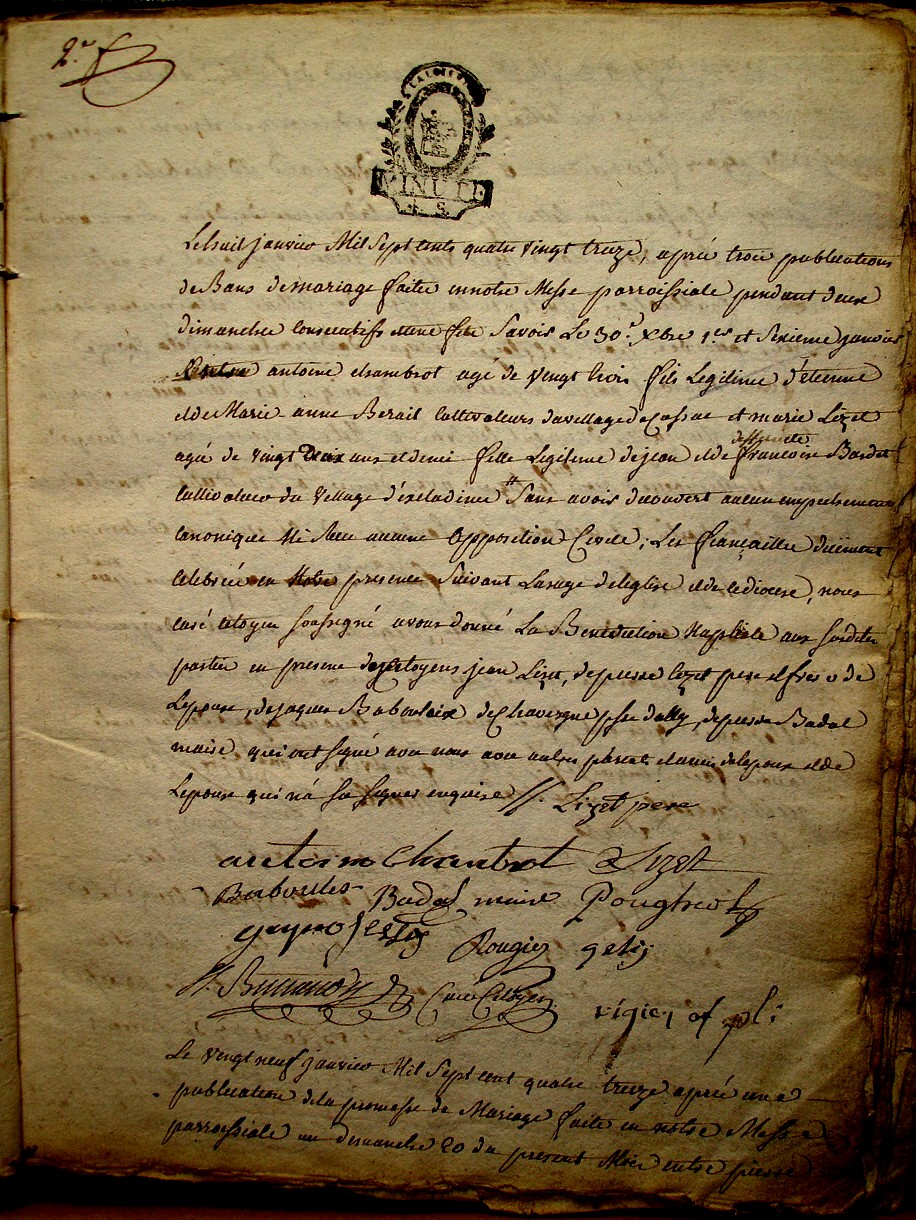 2.e
LA LOI ET
MINUTE
4. S.
Le huit janvier Mil Sept cents quatre vingt treze, aprés trois publications
de Bans de mariage faites en notre Messe parroissiale pendant deux
dimanches consecutifs et une fête Savoir Le 30.e Xbre 1.er et Sixieme janvier
antoine chambrot agé de vingt trois fils Legitime d'etienne
et de Marie anne Berail Cultivateurs du village de Cassac et marie Lizet
agée de vingt deux ans et demi fille Legitime de jean et de deffuncte francoise Bardet
Cultivateurs du village d'exeladines # Sans avoir découvert aucun empechement
canonique Ni Reçu aucune Opposition Civile, Les fiançailles duëment
Celebrées en Notre presence Suivant L'usage de l'eglise et de ce diocese, nous
curé citoyen soussigné avons donné La Benediction Nuptiale aux susdites
parties en presence des citoyens jean Lizet, de pierre lizet pere et frere de
Lepouse, de jaques Baboulaix de Chavergne psse d'ally, de pierre Badal
maire qui ont signé avec nous avec autres parents et amis de lepoux et de
Lepouse qui n'a su signer enquise //. Lizet pere
antoine Chambrot Lizet
Baboules Badal maire Pougheol
Rougier gely
Curé Citoyen vigier, of pl:
Le vingt neuf janvier Mil Sept cent quatre treize aprés une
publication de la promesse de Mariage faite en notre Messe
parroissiale un dimanche 20 du present Mois entre pierre